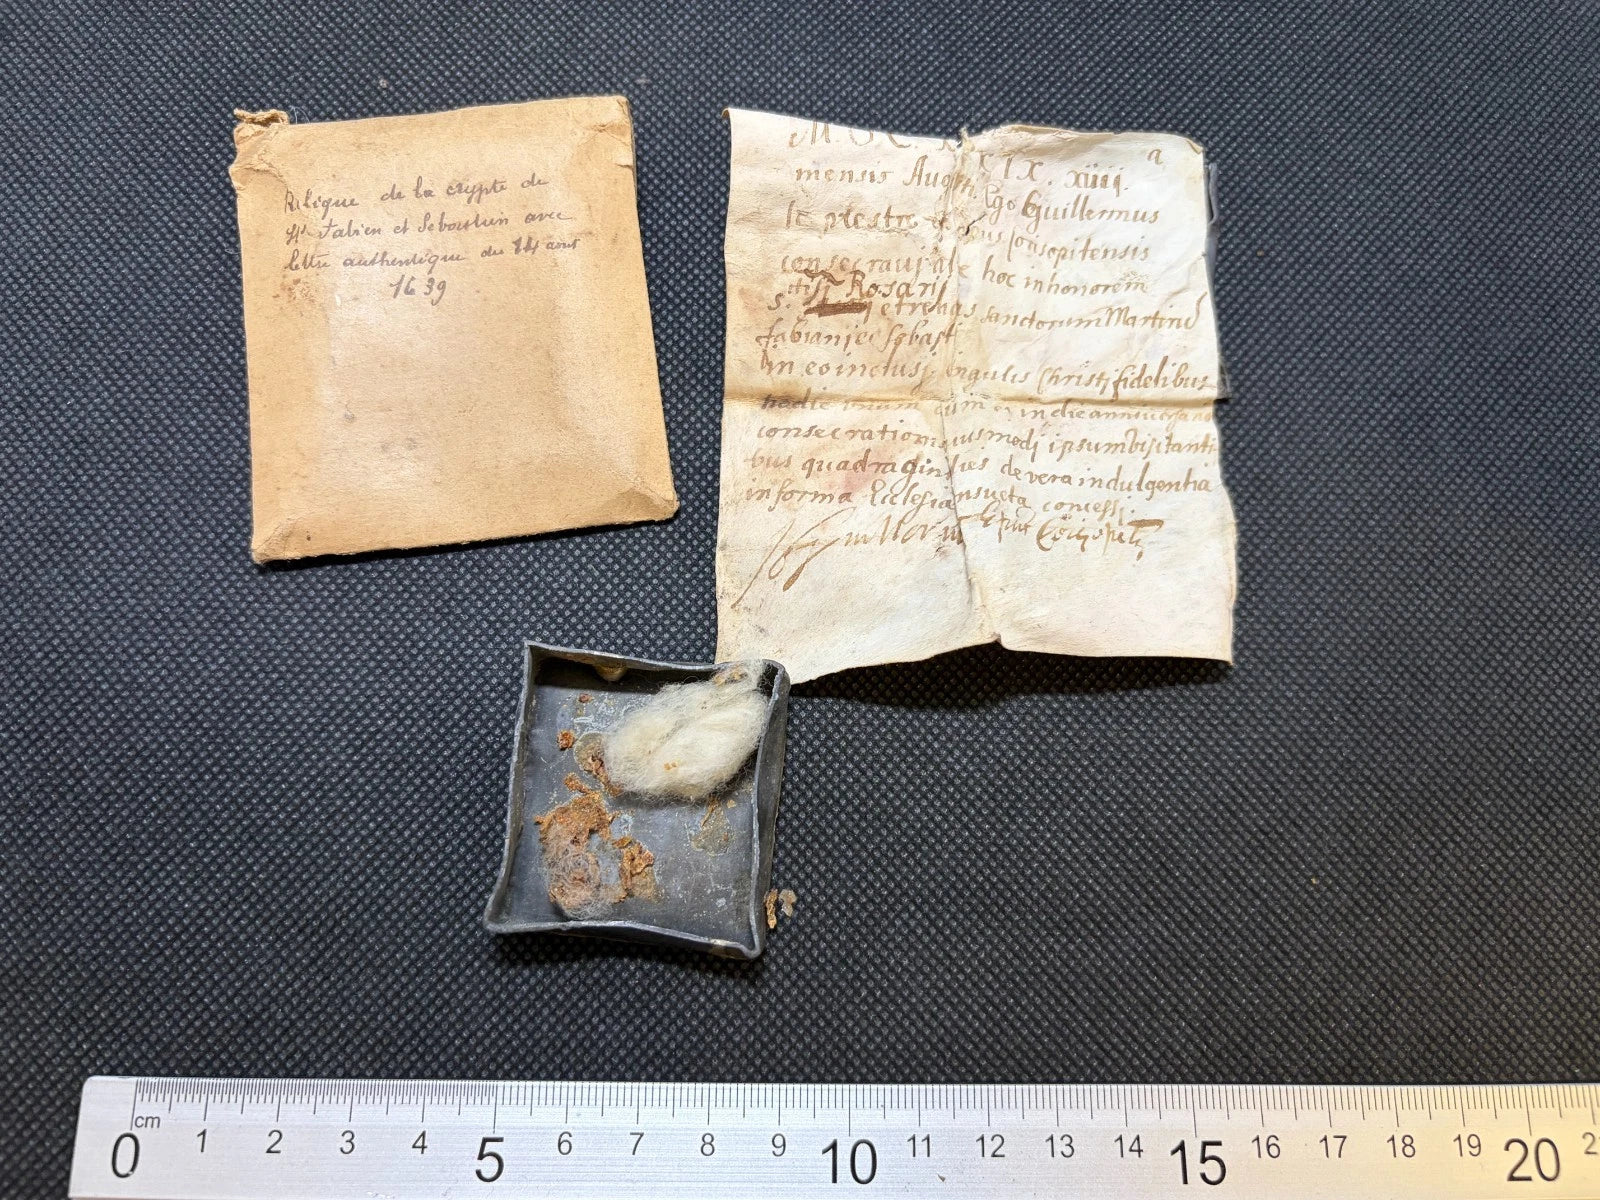 Relique de la crypte de
Sts Fabien et Sebastien avec
lettre authentique du 14 aout
1639
M. D. C. XIX. xiiij. a
mensis Augusti Ego Guillermus
le prestre Corisopitensis
consecravj hoc in honorem
stissi Rosarij
S. et reliquias sanctorum Martirum
fabianj et sebast
in eo inclusj. singulis Christj fidelibus
hodie unum et in die anniversario
consecrationis hujusmodj ipsum visitanti
bus quadraginta dies de vera indulgentia
in forma Ecclesiae consueta concessj.
Guillermus Epus Corisopitn
cm
0 1 2 3 4 5 6 7 8 9 10 11 12 13 14 15 16 17 18 19 20